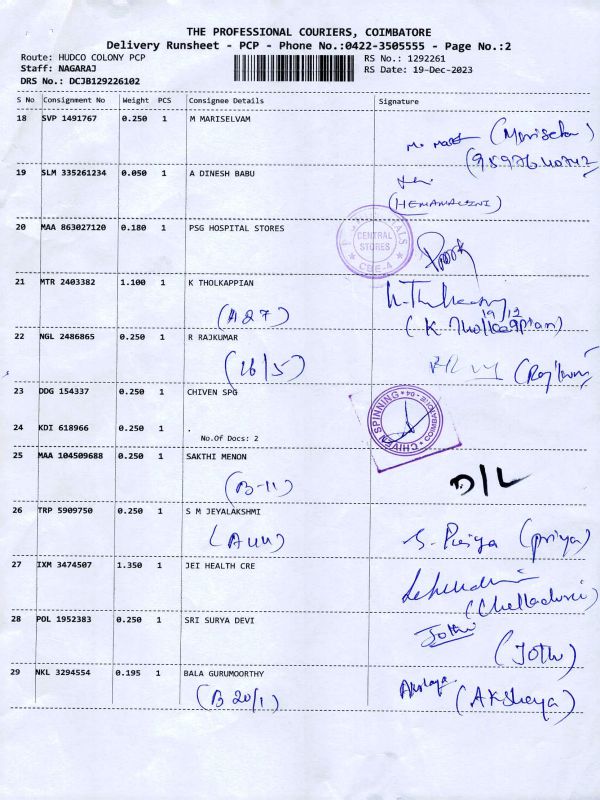 THE PROFESSIONAL COURIERS, COIMBATORE
Delivery Runsheet - PCP - Phone No.:0422-3505555 - Page No.:2
Route: HUDCO COLONY PCP
Staff: NAGARAJ
DRS No.: DCJB129226102
RS No.: 1292261
RS Date: 19-Dec-2023
S No Consignment No Weight PCS Consignee Details Signature
18 SVP 1491767 0.250 1 M MARISELVAM
19 SLM 335261234 0.050 1 A DINESH BABU
(HEMAMALINI)
20 MAA 863027120 0.180 1 PSG HOSPITAL STORES
CENTRAL STORES
CBE-4
21 MTR 2403382 1.100 1 K THOLKAPPIAN
(A27)
19/12
(K Tholkappian)
22 NGL 2486865 0.250 1 R RAJKUMAR
(16/5)
23 DDG 154337 0.250 1 CHIVEN SPG
CHIVEN SPINNING COIMBATORE - 04
24 KDI 618966 0.250 1 .
No.Of Docs: 2
25 MAA 104509688 0.250 1 SAKTHI MENON
(B-11)
D/L
26 TRP 5909750 0.250 1 S M JEYALAKSHMI
S. Priya (priya)
27 IXM 3474507 1.350 1 JEI HEALTH CRE
(Chelladurai)
28 POL 1952383 0.250 1 SRI SURYA DEVI
Jothi
(Jothi)
29 NKL 3294554 0.195 1 BALA GURUMOORTHY
(B 20/1)
Akshaya (Akshaya)